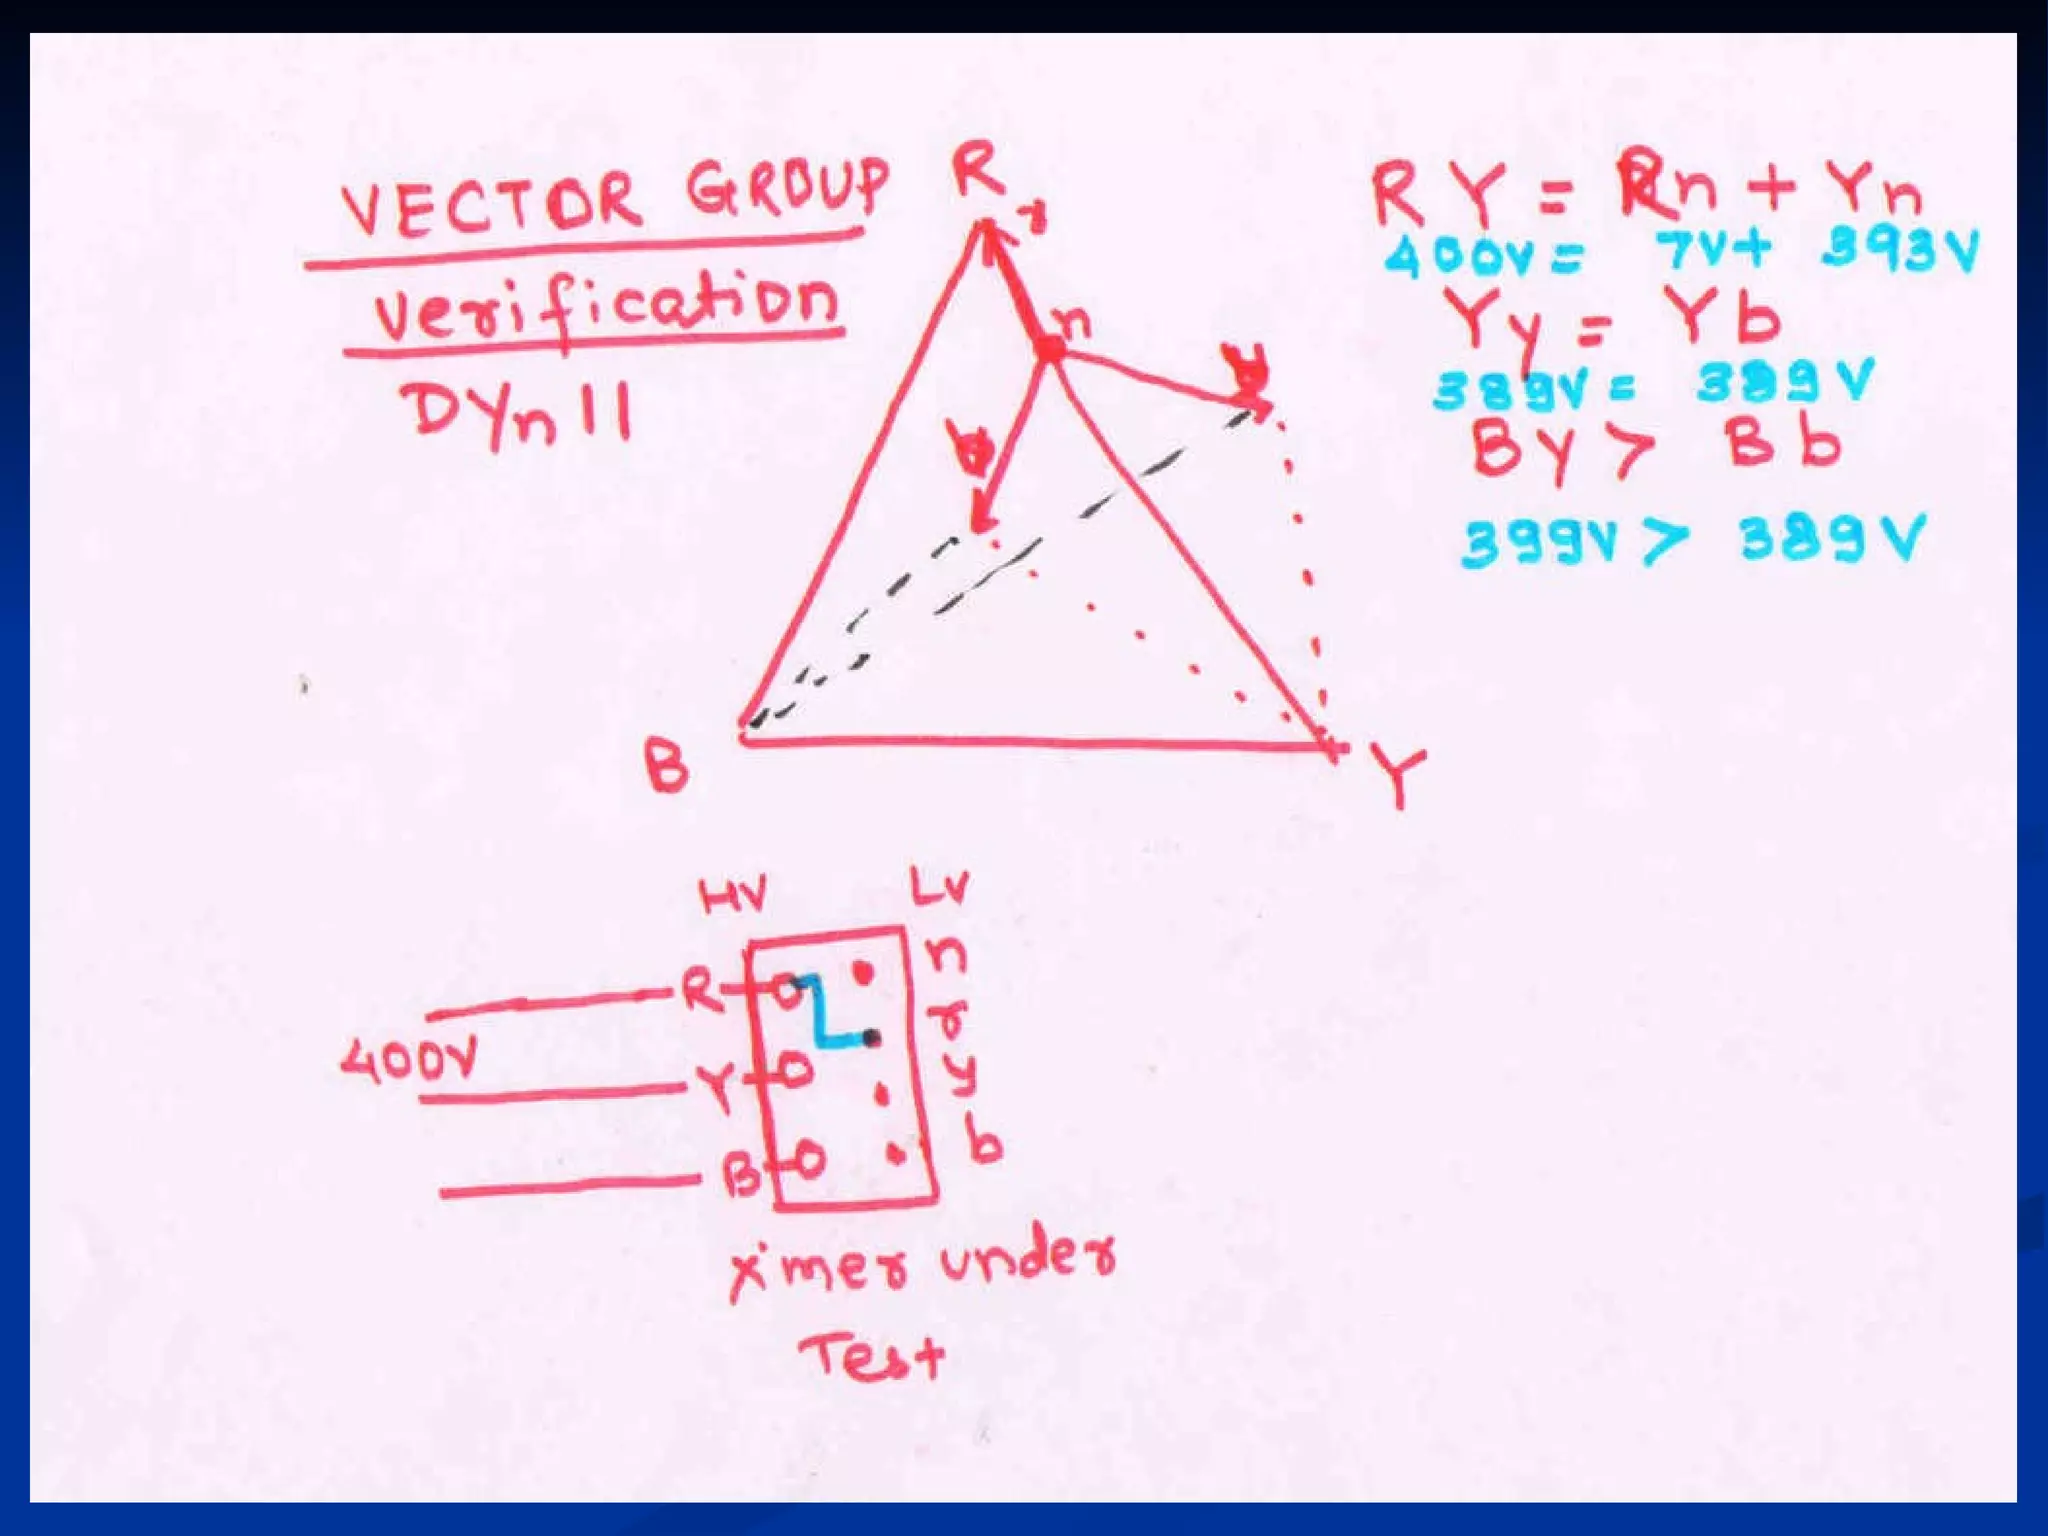 VECTOR GROUP
Verification
DYn 11
R
r
n
B
Y
RY = Rn + Yn
400V = 7V + 393V
Yy = Yb
389V = 389V
By > Bb
399V > 389V
HV LV
R n
400V
r
Y y
B b
X'mer under
Test